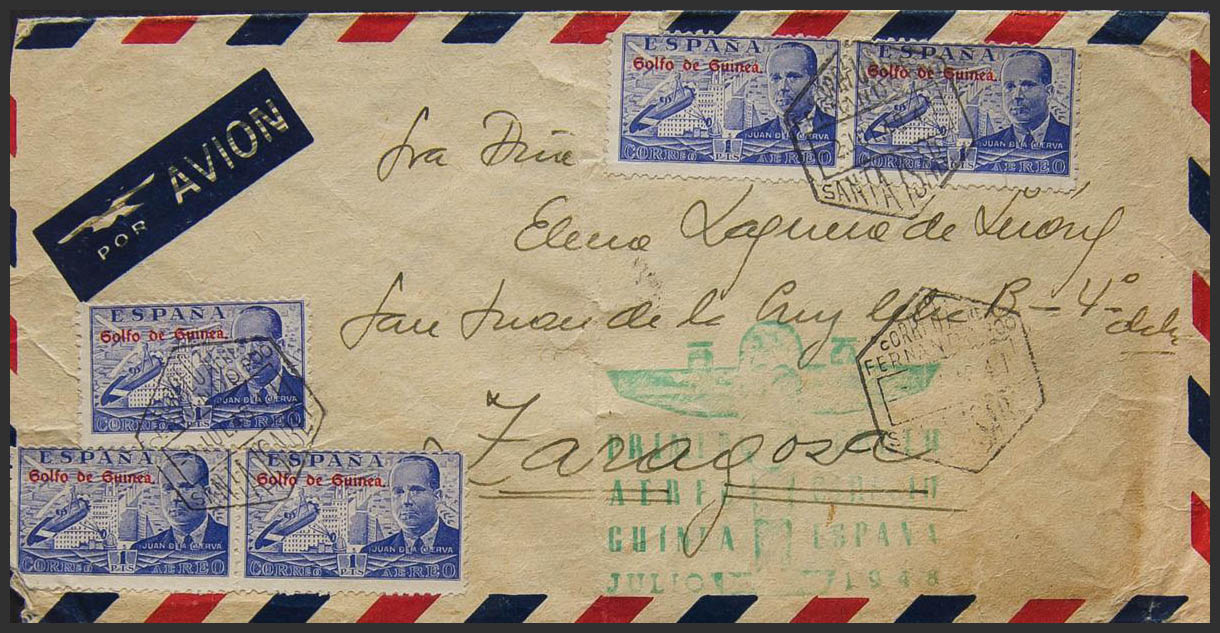 POR AVION
ESPAÑA
Golfo de Guinea.
JUAN DE LA CIERVA
CORREO 1 PTS AEREO
ESPAÑA
Golfo de Guinea.
JUAN DE LA CIERVA
CORREO 1 PTS AEREO
SANTA ISABEL
Sra Dña
Elena Laguna de
San Juan de la Cruz B-4º dcha
Zaragosa
CORREO AEREO
FERNANDO POO
SANTA ISABEL
ESPAÑA
Golfo de Guinea.
JUAN DE LA CIERVA
CORREO 1 PTS AEREO
ESPAÑA
Golfo de Guinea.
JUAN DE LA CIERVA
1 PTS
CORREO AEREO
ESPAÑA
Golfo de Guinea.
JUAN DE LA CIERVA
1 PTS
CORREO AEREO
PRIMER VUELO
AEREO CORREO
GUINEA ESPAÑA
JULIO 1948